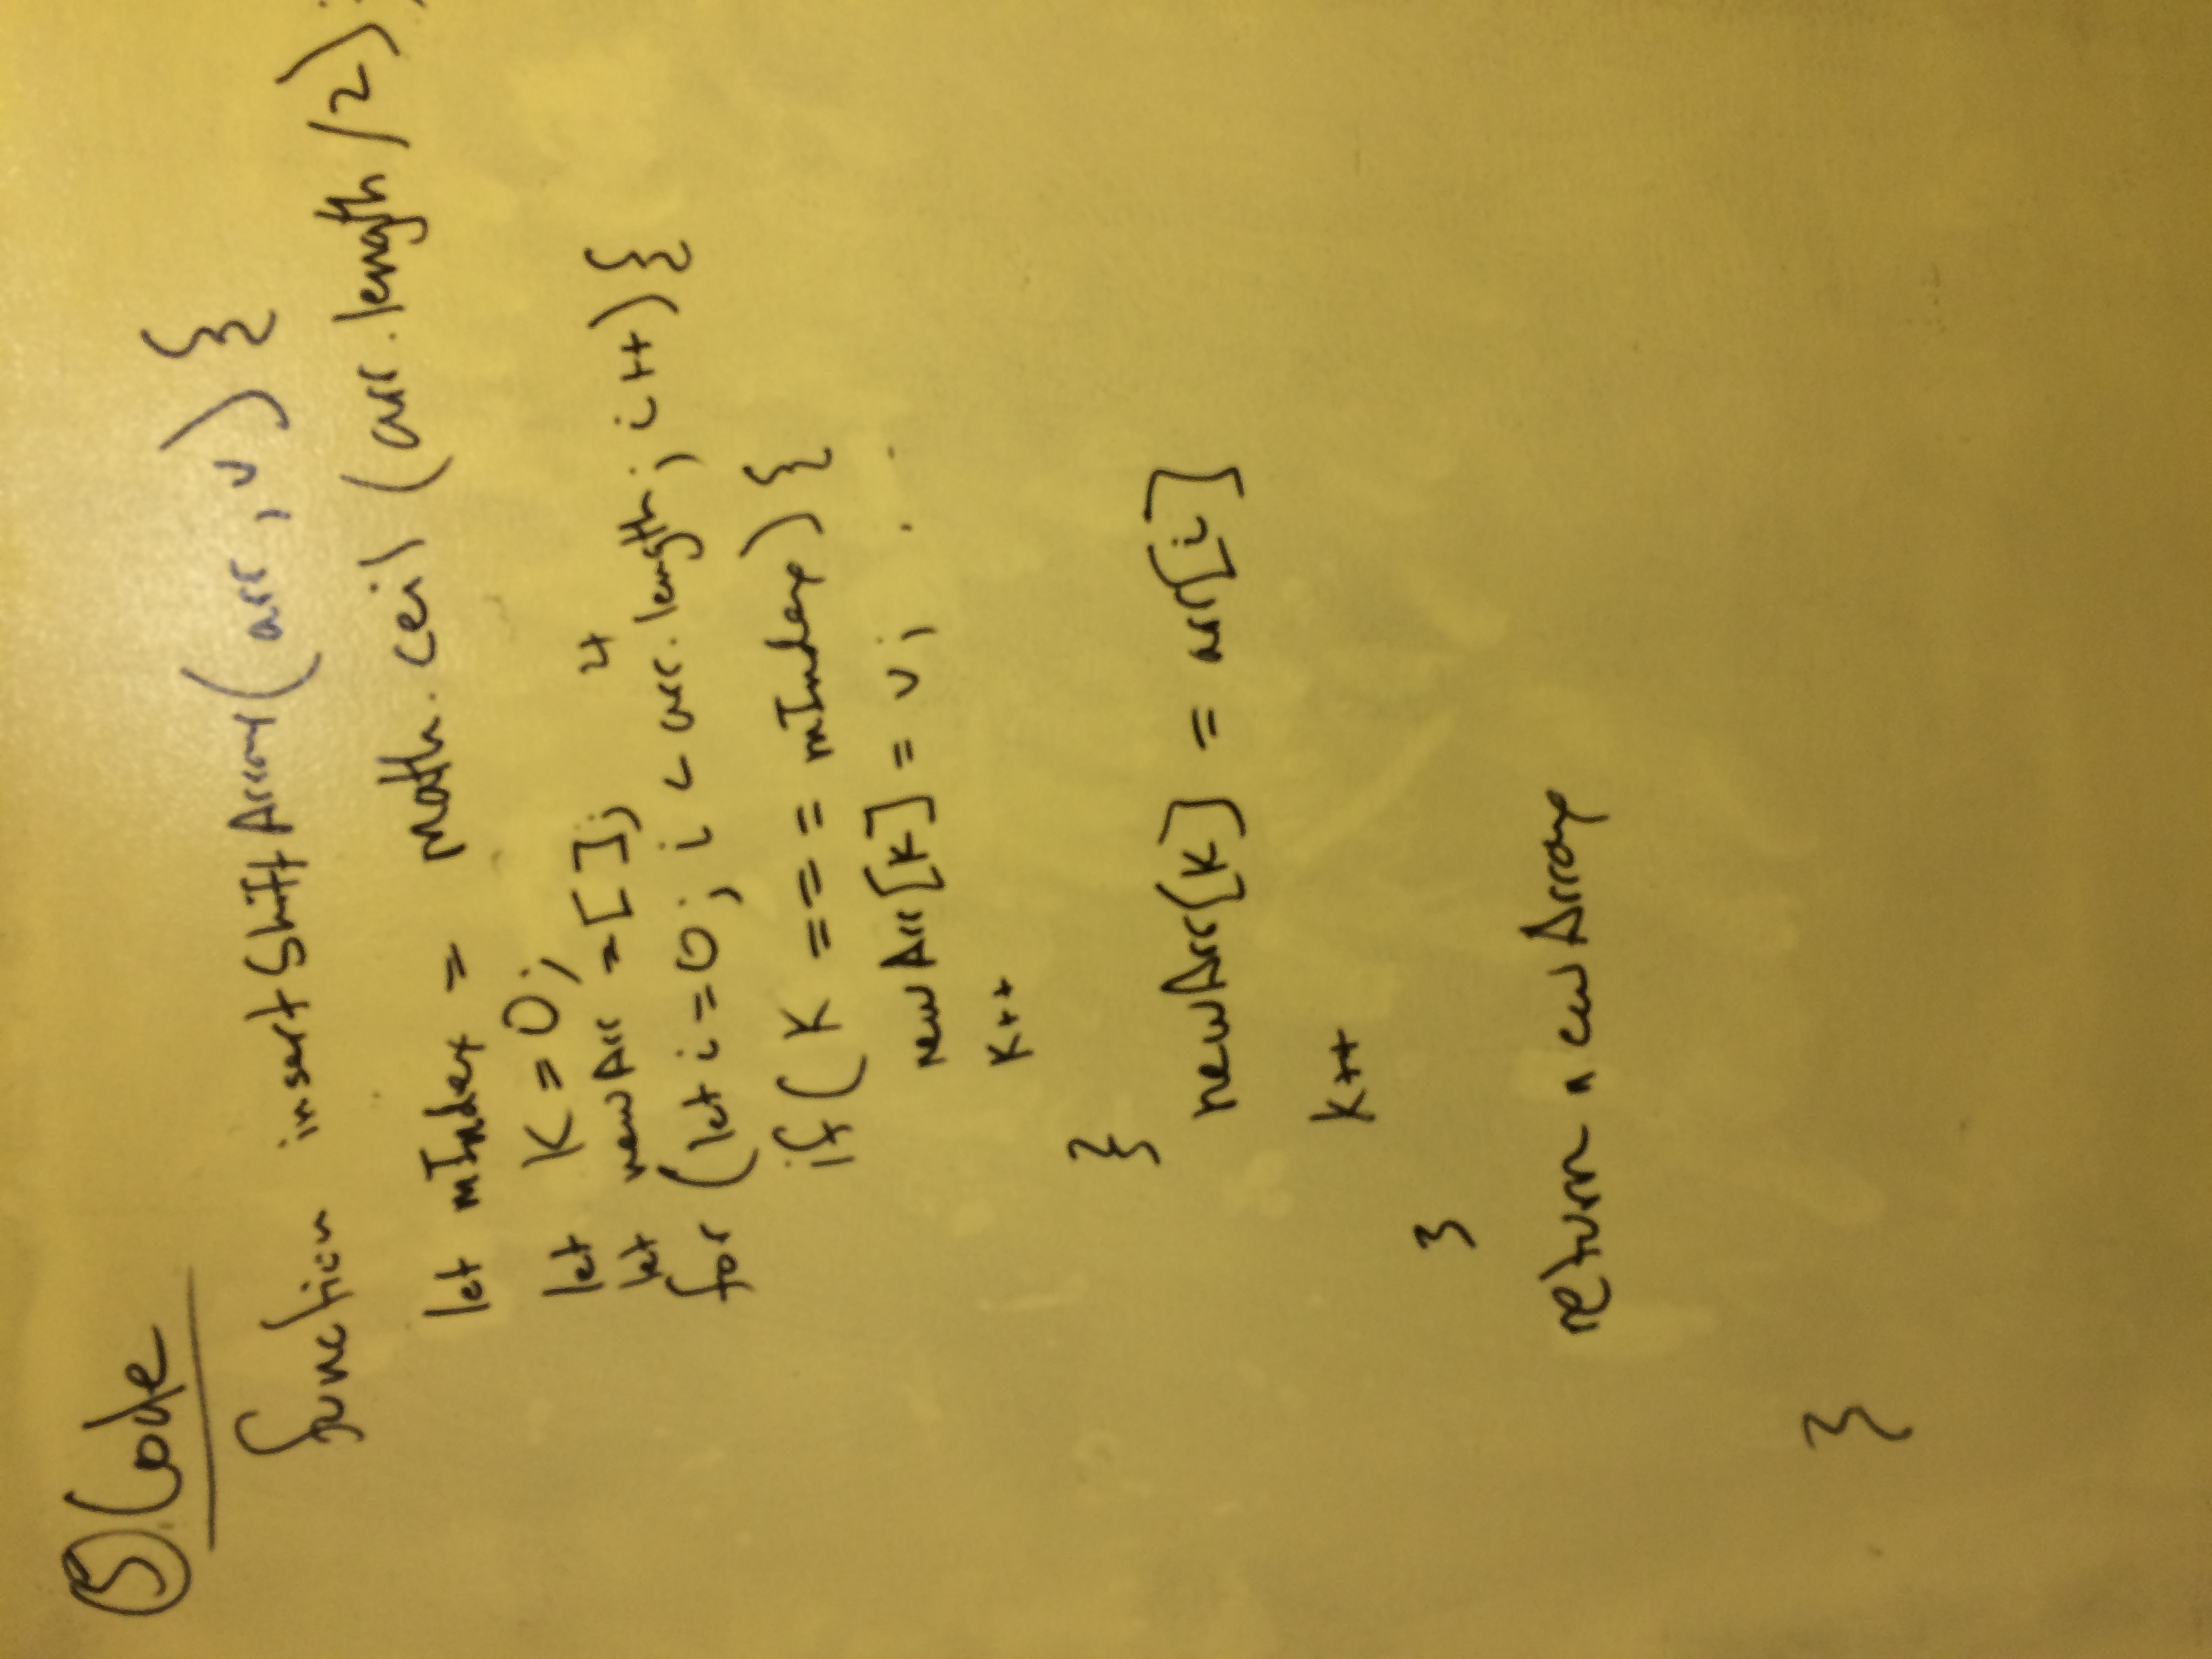 ⑤ Code
function insertShiftArray(arr, v) {
let mIndex = math.ceil (arr.length /2);
let K = 0;
let newArr = [];
4
for (let i = 0; i < arr.length; i++) {
if( K === mIndex) {
newArr[K] = v;
K++
}
newArr[K] = arr[i]
k++
}
return newArray
}